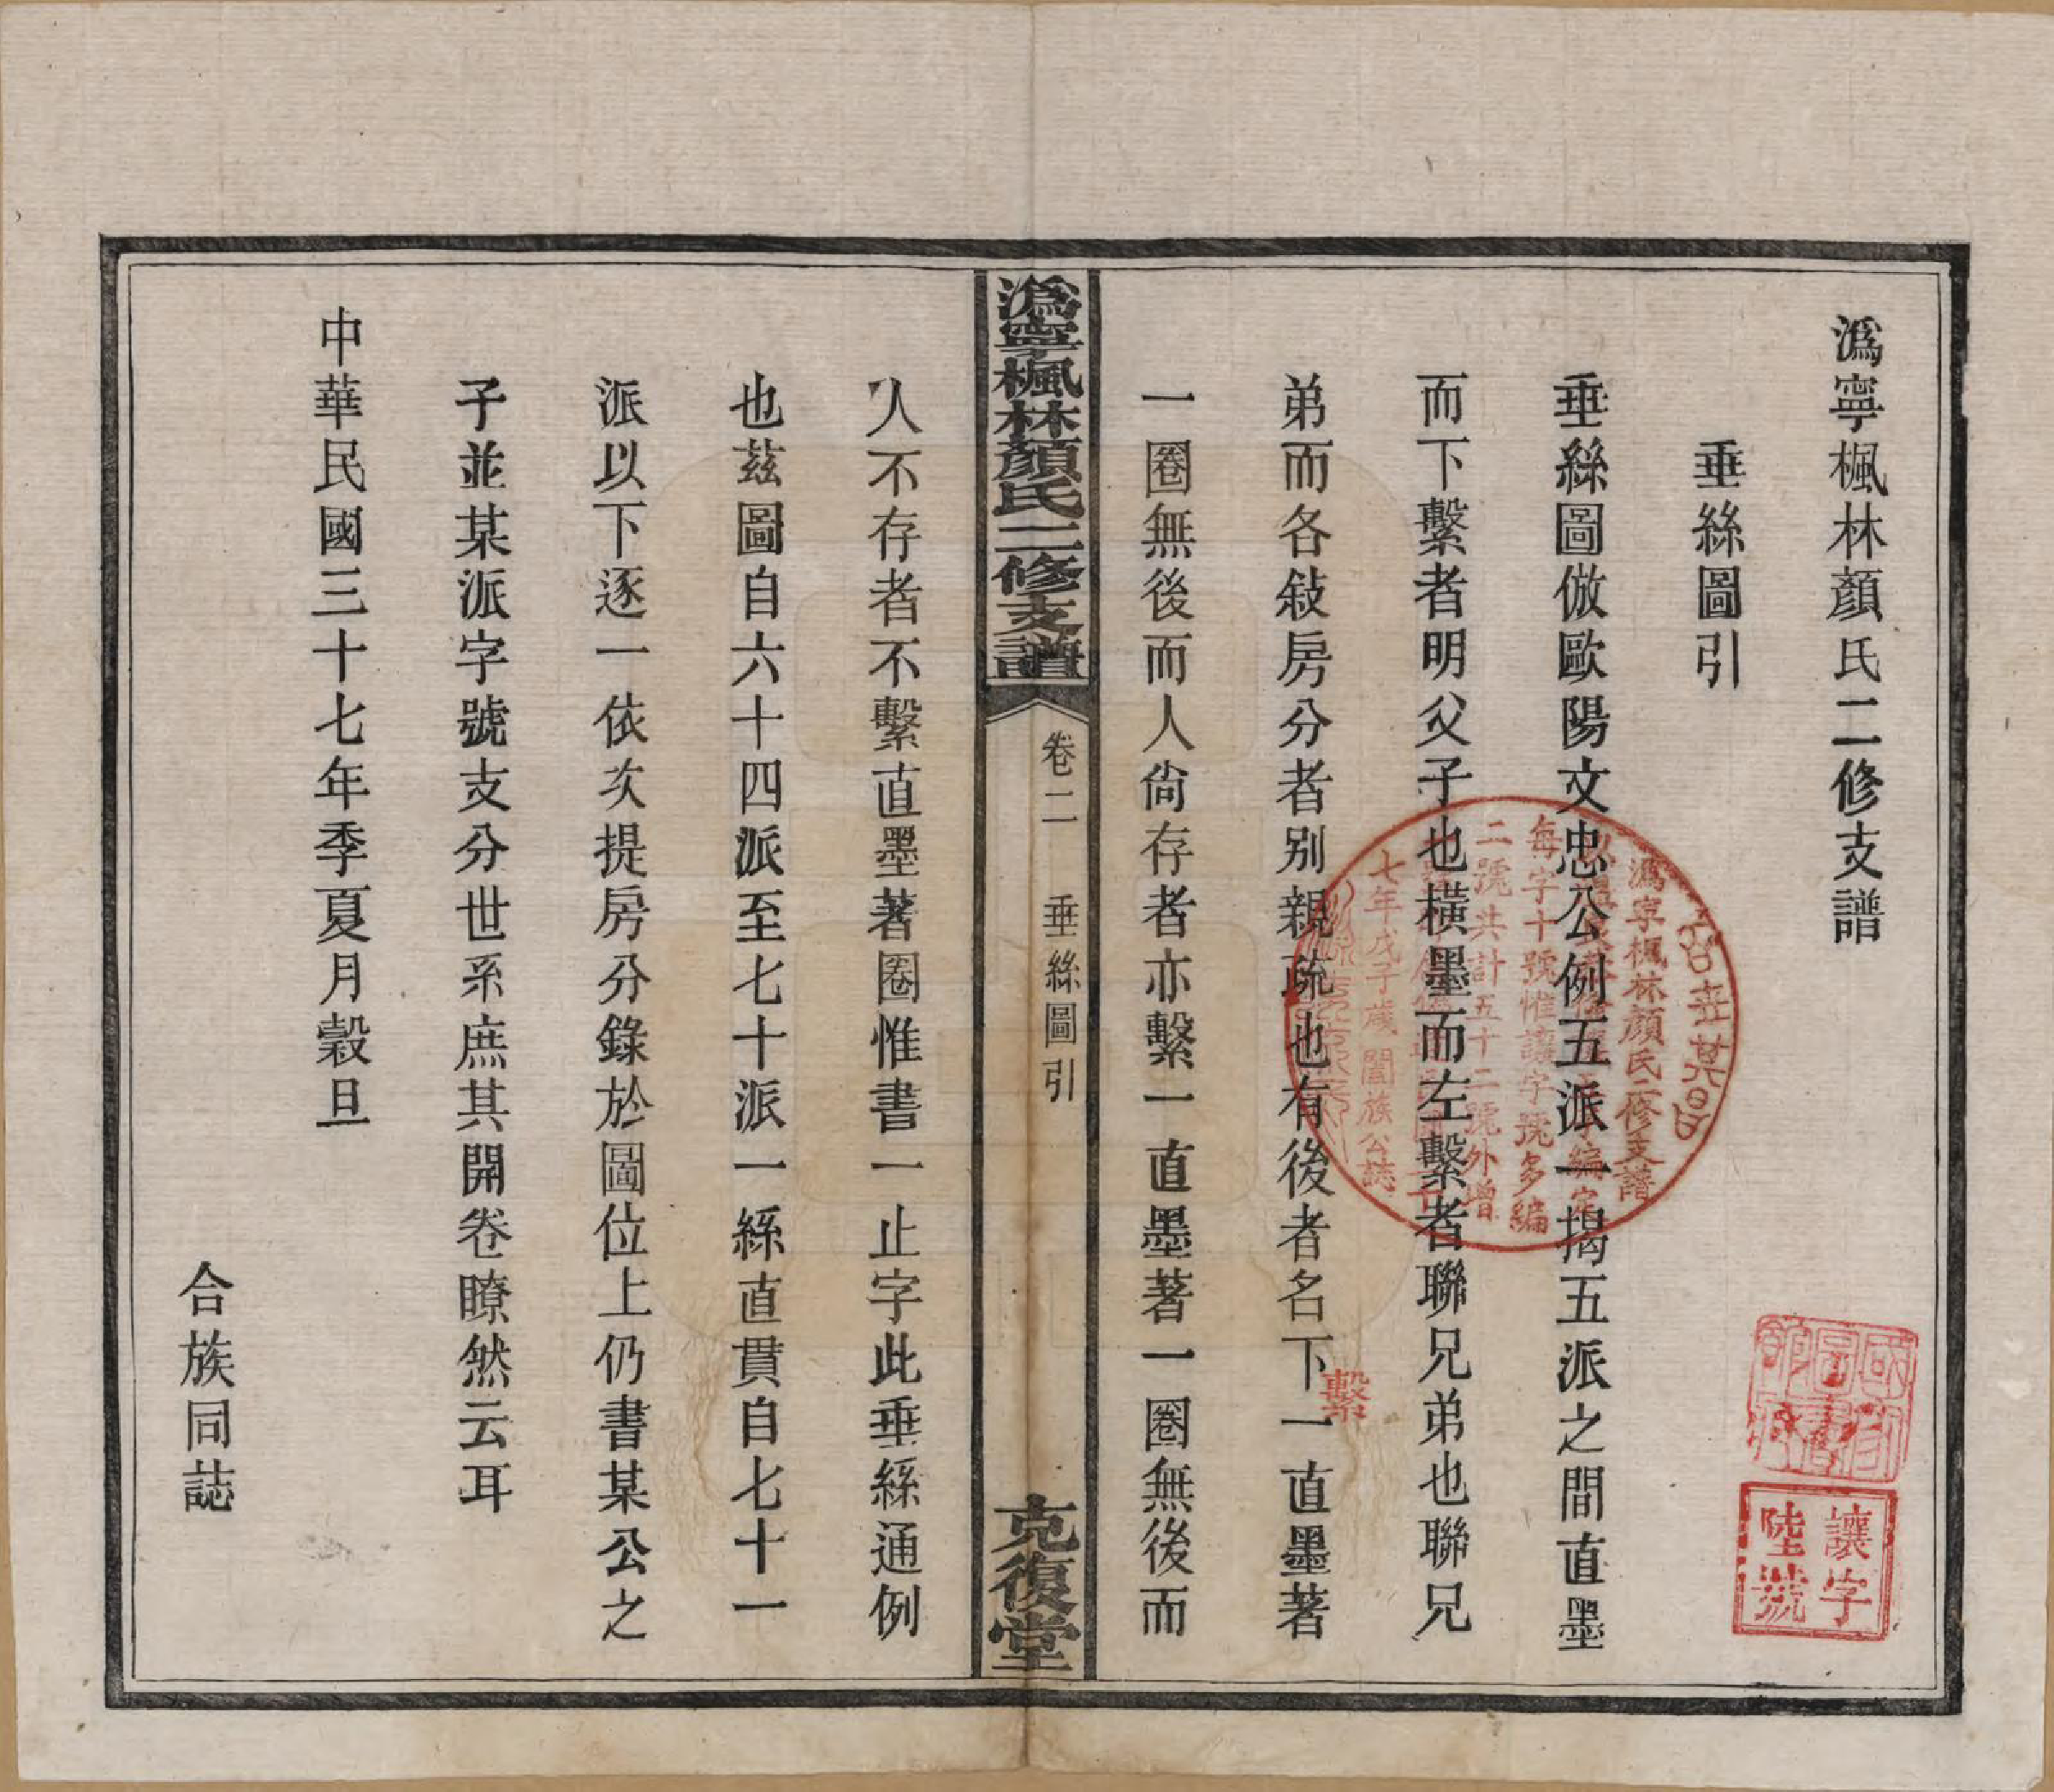 潙寧楓林顏氏二修支譜
垂絲圖引
垂絲圖倣歐陽文忠公例五派一揭五派之間直墨
而下繫者明父子也橫墨而左繫者聯兄弟也聯兄
弟而各敍房分者別親疏也有後者名下一直墨著
繫
一圈無後而人尙存者亦繫一直墨著一圈無後而
潙寧楓林顏氏二修支譜
卷二 垂絲圖引
克復堂
人不存者不繫直墨著圈惟書一止字此垂絲通例
也茲圖自六十四派至七十派一絲直貫自七十一
派以下逐一依次提房分錄於圖位上仍書某公之
子並某派字號支分世系庶其開卷瞭然云耳
中華民國三十七年季夏月穀旦
合族同誌
潙寧楓林顏氏二修支譜
每字十號惟讓字號多編
二號共計五十二號外增
七年戊子歲閤族公誌
讓字
陸號